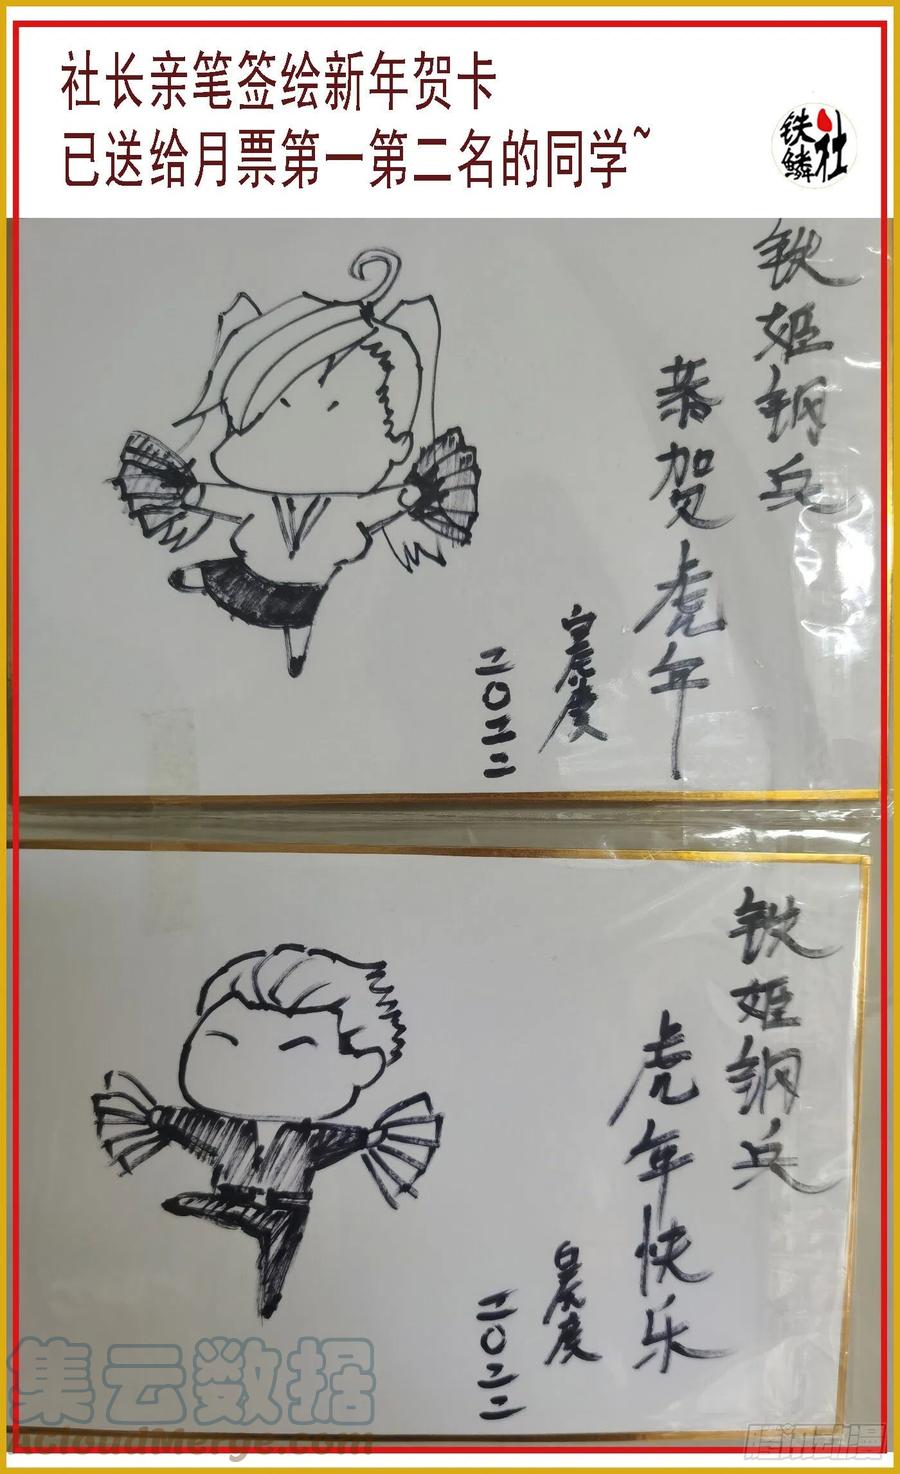 社长亲笔签绘新年贺卡
已送给月票第一第二名的同学~
铁鳞社
铁姬钢兵
恭贺虎年
二〇二二
铁姬钢兵
虎年快乐
二〇二二
集云数据
AcloudMerge.com
腾讯动漫